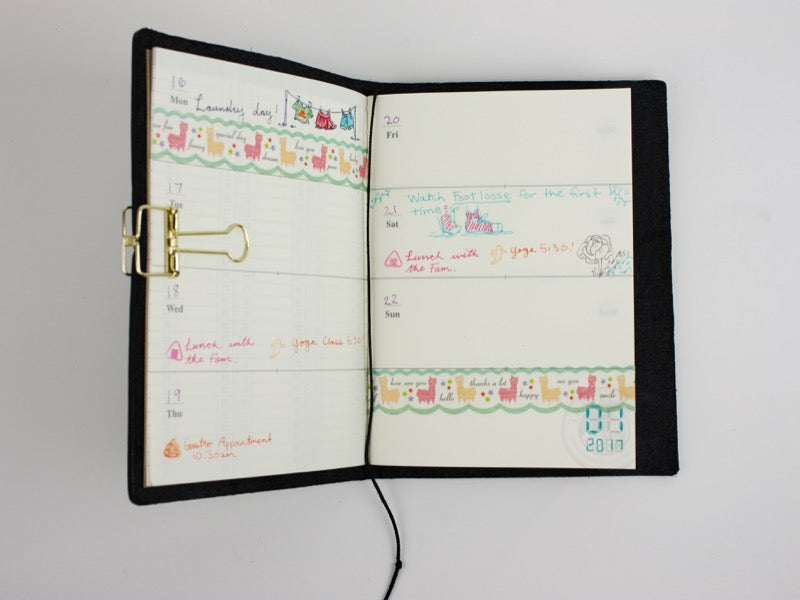 16
Mon
Laundry day!
special day
love you
funny
dream
17
Tue
18
Wed
Lunch with
the Fam.
Yoga Class 5:30
19
Thu
Gastro Appointment
10:30am
20
Fri
21
Sat
Watch Footloose for the first
time
Lunch with
the Fam.
Yoga 5:30!
22
Sun
how are you
thanks a lot
see you
hello
happy
smile
01
2017